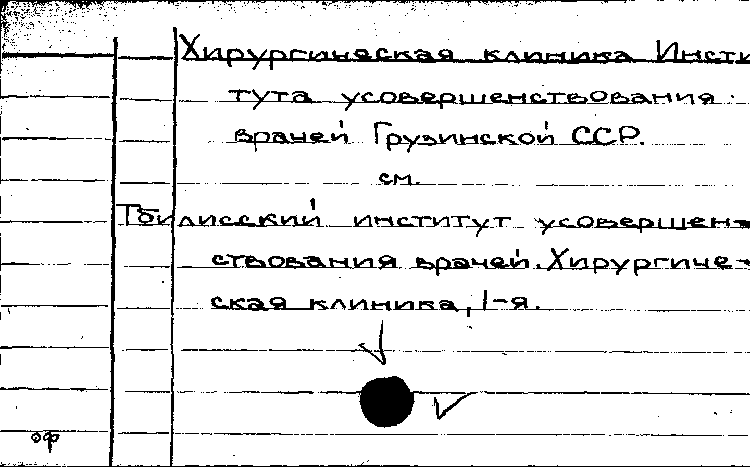 Хирургическая клиника Инсти
тута усовершенствования
врачей Грузинской ССР.
см.
Тбилисский институт усовершен-
ствования врачей. Хирургиче-
ская клиника, 1-я.
оф